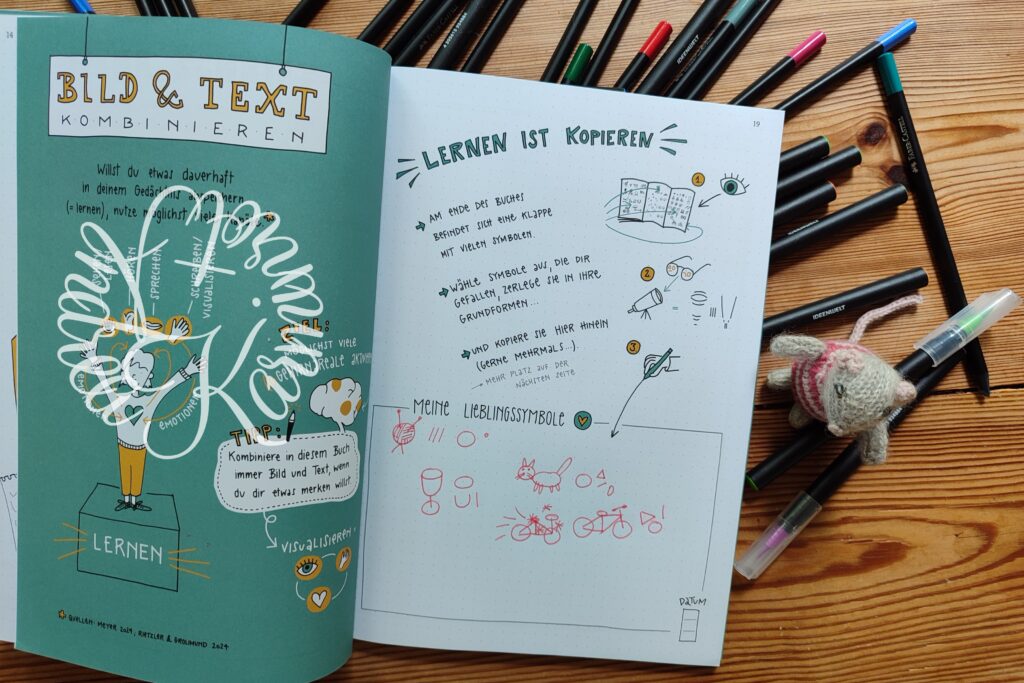 14
BILD & TEXT
KOMBINIEREN
Willst du etwas dauerhaft
in deinem Gedächtnis
(= lernen), nutze möglichst
HÖREN
SPRECHEN
SCHREIBEN/
VISUALISIEREN
EMOTIONEN
MÖGLICHST VIELE
TIPP:
Kombiniere in diesem Buch
immer Bild und Text, wenn
du dir etwas merken willst
VISUALISIEREN
LERNEN
QUELLEN: MEYER 2024, RIETZLER & GROLIMUND 2024
19
LERNEN IST KOPIEREN
1
AM ENDE DES BUCHES
BEFINDET SICH EINE KLAPPE
MIT VIELEN SYMBOLEN.
2
WÄHLE SYMBOLE AUS, DIE DIR
GEFALLEN, ZERLEGE SIE IN IHRE
GRUNDFORMEN...
3
UND KOPIERE SIE HIER HINEIN
(GERNE MEHRMALS...).
MEHR PLATZ AUF DER
NÄCHSTEN SEITE
MEINE LIEBLINGSSYMBOLE
DATUM
IDEENWELT
IDEENWELT
FABER-CASTELL